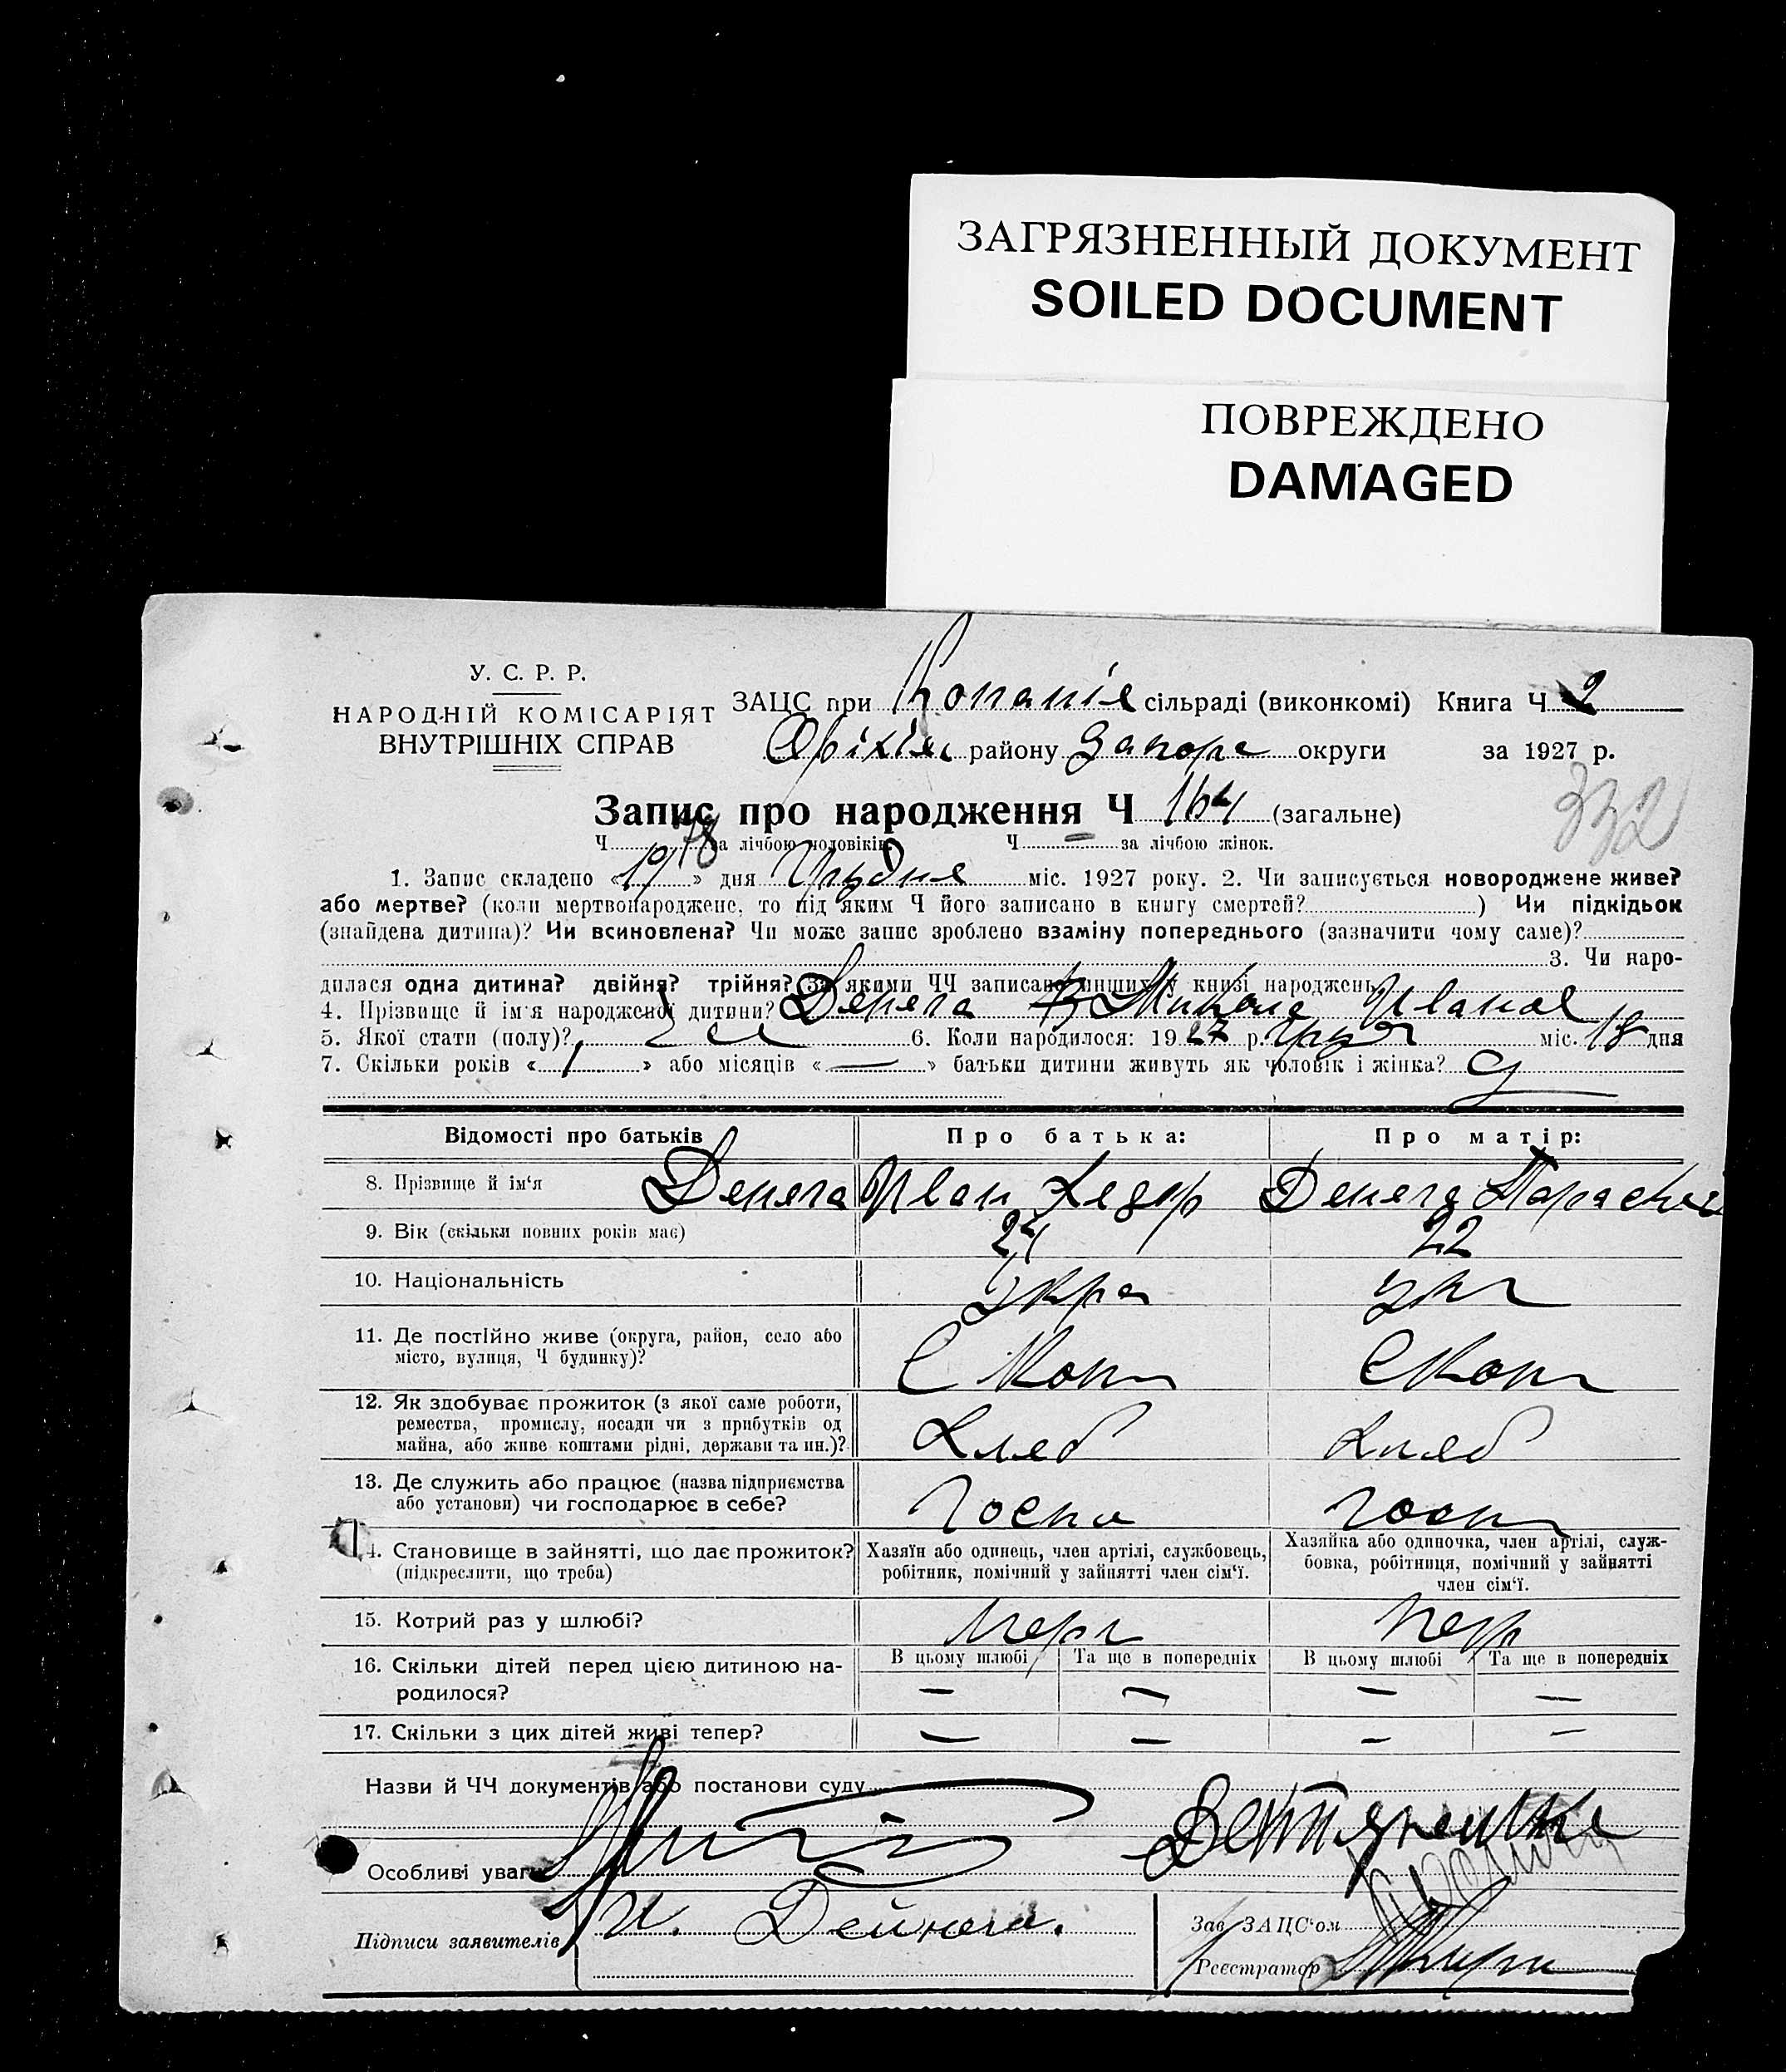 ЗАГРЯЗНЕННЫЙ ДОКУМЕНТ
SOILED DOCUMENT
ПОВРЕЖДЕНО
DAMAGED
У. С. Р. Р.
НАРОДНІЙ КОМІСАРІЯТ
ВНУТРІШНІХ СПРАВ
ЗАЦС при Копанів сільраді (виконкомі) Книга Ч 2
Оріхів району Запорі округи за 1927 р.
332
Запис про народження Ч 164 (загальне)
Ч 78 за лічбою чоловіків. Ч — за лічбою жінок.
1. Запис складено «19» дня Грудня міс. 1927 року. 2. Чи записується новороджене живе?
або мертве? (коли мертвонароджене, то під яким Ч його записано в книгу смертей? ) Чи підкідьок
(знайдена дитина)? Чи всиновлена? Чи може запис зроблено взаміну попереднього (зазначити чому саме)?
3. Чи наро-
дилася одна дитина? двійня? трійня? За якими ЧЧ записано инших у книзі народжень
4. Прізвище й ім'я народженої дитини? Денега Микола Иванов
5. Якої стати (полу)? 6. Коли народилося: 1927 р. міс. 18 дня
7. Скільки років «1» або місяців «—» батьки дитини живуть як чоловік і жінка?
Відомості про батьків Про батька: Про матір:
8. Прізвище й ім'я Денега Иван Хедор Денега Параска
9. Вік (скільки повних років має) 24 22
10. Національність Укра Укр
11. Де постійно живе (округа, район, село або
місто, вулиця, Ч будинку)? С Коп С Коп
12. Як здобуває прожиток (з якої саме роботи,
ремества, промислу, посади чи з прибутків од
майна, або живе коштами рідні, держави та ин.)? Хлеб Хлеб
13. Де служить або працює (назва підприємства
або установи) чи господарює в себе? Госпо Госп
14. Становище в зайнятті, що дає прожиток? Хазяїн або одинець, член артілі, службовець, Хазяйка або одиночка, член артілі, служ-
(підкреслити, що треба) робітник, помічний у зайнятті член сім'ї. бовка, робітниця, помічний у зайнятті
член сім'ї.
15. Котрий раз у шлюбі? Пер Пер
16. Скільки дітей перед цією дитиною на- В цьому шлюбі Та ще в попередніх В цьому шлюбі Та ще в попередніх
родилося? — — — —
17. Скільки з цих дітей живі тепер? — — — —
Назви й ЧЧ документів або постанови суду
Особливі уваги
Підписи заявителів И. Дейнега.
Зав. ЗАЦС'ом
Реєстратор